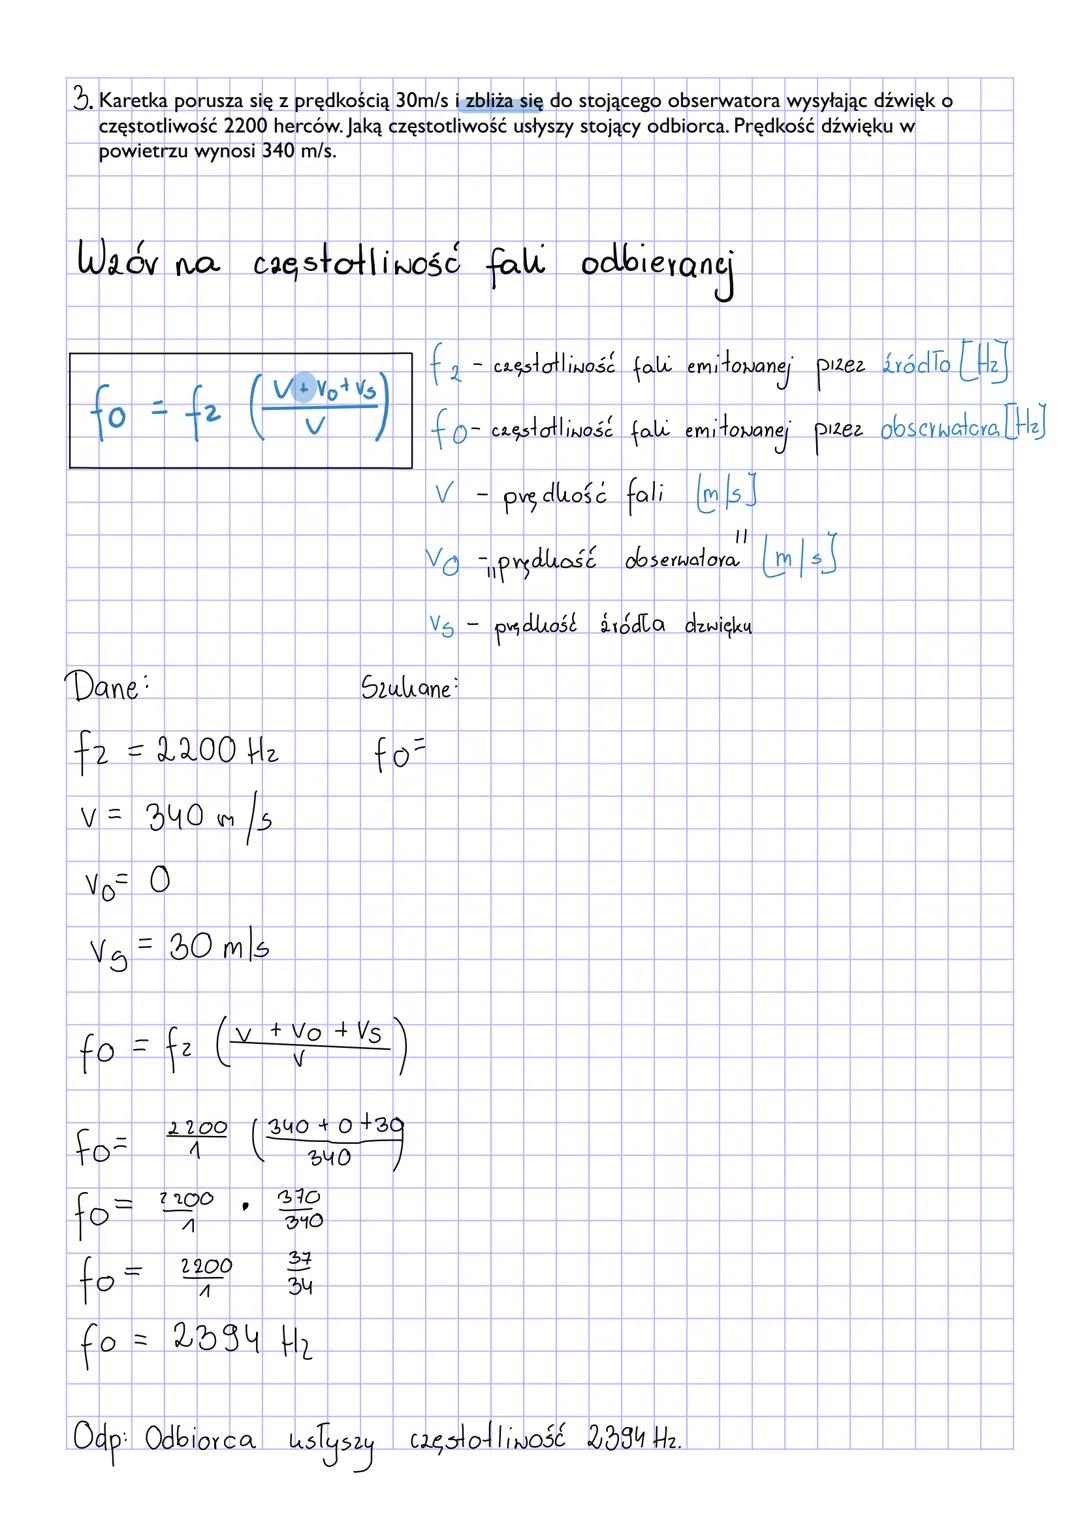 3. Karetka porusza się z prędkością 30m/s i zbliża się do stojącego obserwatora wysyłając dźwięk o
częstotliwość 2200 herców. Jaką częstotliwość usłyszy stojący odbiorca. Prędkość dźwięku w
powietrzu wynosi 340 m/s.
Wzór na częstotliwość fali odbieranej
fo = fz ( (V + Vo + Vs) / V )
fz - częstotliwość fali emitowanej przez źródło [Hz]
fo - częstotliwość fali emitowanej przez obserwatora [Hz]
V - prędkość fali [m/s]
Vo - „prędkość obserwatora" [m/s]
Vs - prędkość źródła dzwięku
Dane: Szukane:
fz = 2200 Hz fo=
V = 340 m/s
Vo = 0
Vs = 30 m/s
fo = fz ( (V + Vo + Vs) / V )
fo = 2200/1 ( (340 + 0 + 30) / 340 )
fo = 2200/1 · 370/340
fo = 2200/1 37/34
fo = 2394 Hz
Odp: Odbiorca usłyszy częstotliwość 2394 Hz.